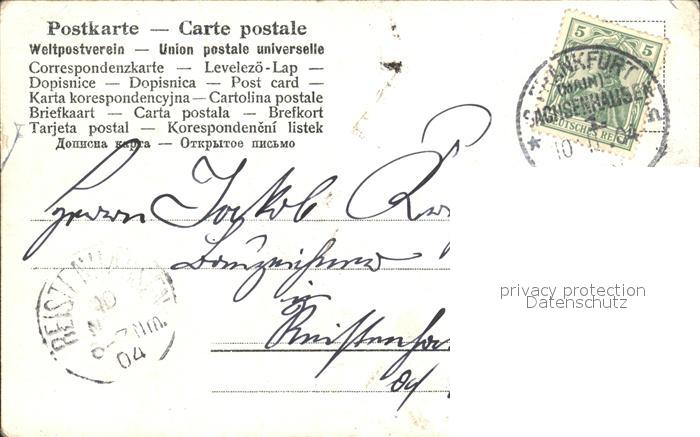 Postkarte — Carte postale
Weltpostverein — Union postale universelle
Correspondenzkarte — Levelező-Lap —
Dopisnice — Dopisnica — Post card —
Karta korespondencyjna — Cartolina postale
Briefkaart — Carta postala — Brefkort
Tarjeta postal — Korespondenční listek
Дописна карта — Открытое письмо
5 5
DEUTSCHES REICH
FRANKFURT
(MAIN)
SACHSENHAUSEN
Herrn Jakob
in
REISTENHAUSEN
04
privacy protection
Datenschutz